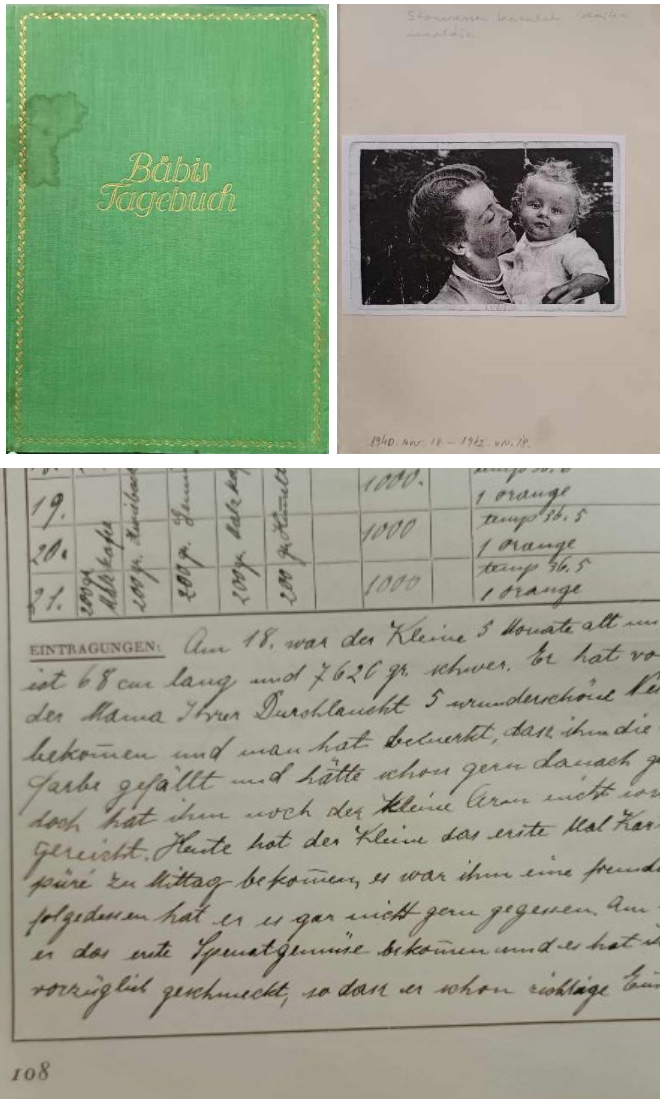 Bäbis
Tagebuch
dajka
naplója
1940. nov. 18 –
1000.
1 orange
19. 1000 temp 36.5
1 orange
20. 1000 temp 36.5
1 orange
21. 1000
200 gr.
Malzkafe
200 gr.
200 gr.
200 gr.
200 gr.
EINTRAGUNGEN: Am 18. war der Kleine 5 Monate alt
ist 68 cm lang und 7620 gr. schwer. Er hat
der Mama Ihrer Durchlaucht 5 wunderschöne
bekom̄en und man hat bemerkt, dass ihm die
farbe gefällt und hätte schon gern danach
doch hat ihm noch der kleine Arm nicht
gereicht. Heute hat der Kleine das erste Mal
püré zu Mittag bekom̄en, es war ihm eine
folgedessen hat er es gar nicht gern gegessen. Am
er das erste Spenatgemüse bekom̄en und es hat
vorzüglich geschmeckt, so dass er schon richtige
108